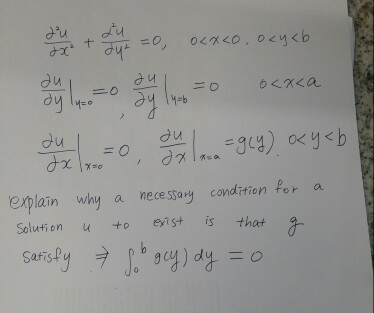 ∂²u/∂x² + ∂²u/∂y² = 0, 0<x<0. 0<y<b
∂u/∂y|y=0 = 0, ∂u/∂y|y=b = 0 0<x<a
∂u/∂x|x=0 = 0, ∂u/∂x|x=a = g(y). 0<y<b
explain why a necessary condition for a
solution u to exist is that g
satisfy ⇒ ∫₀ᵇ g(y) dy = 0